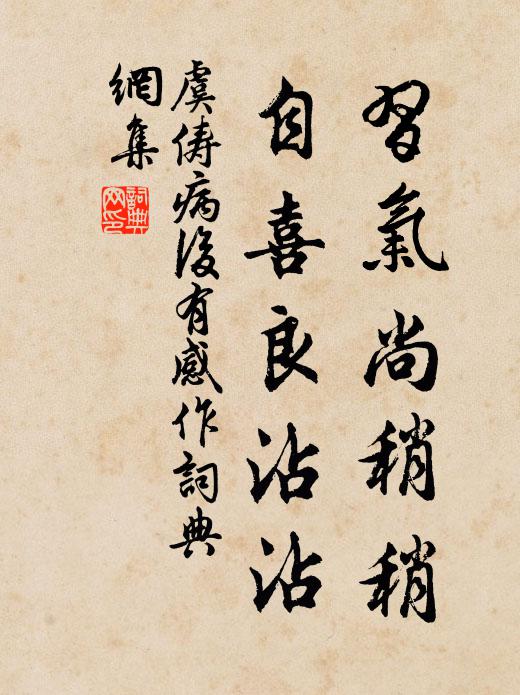 習氣尚稍稍
自喜良沾沾
虞儔病後有感作詞典
網集
詞典
网印